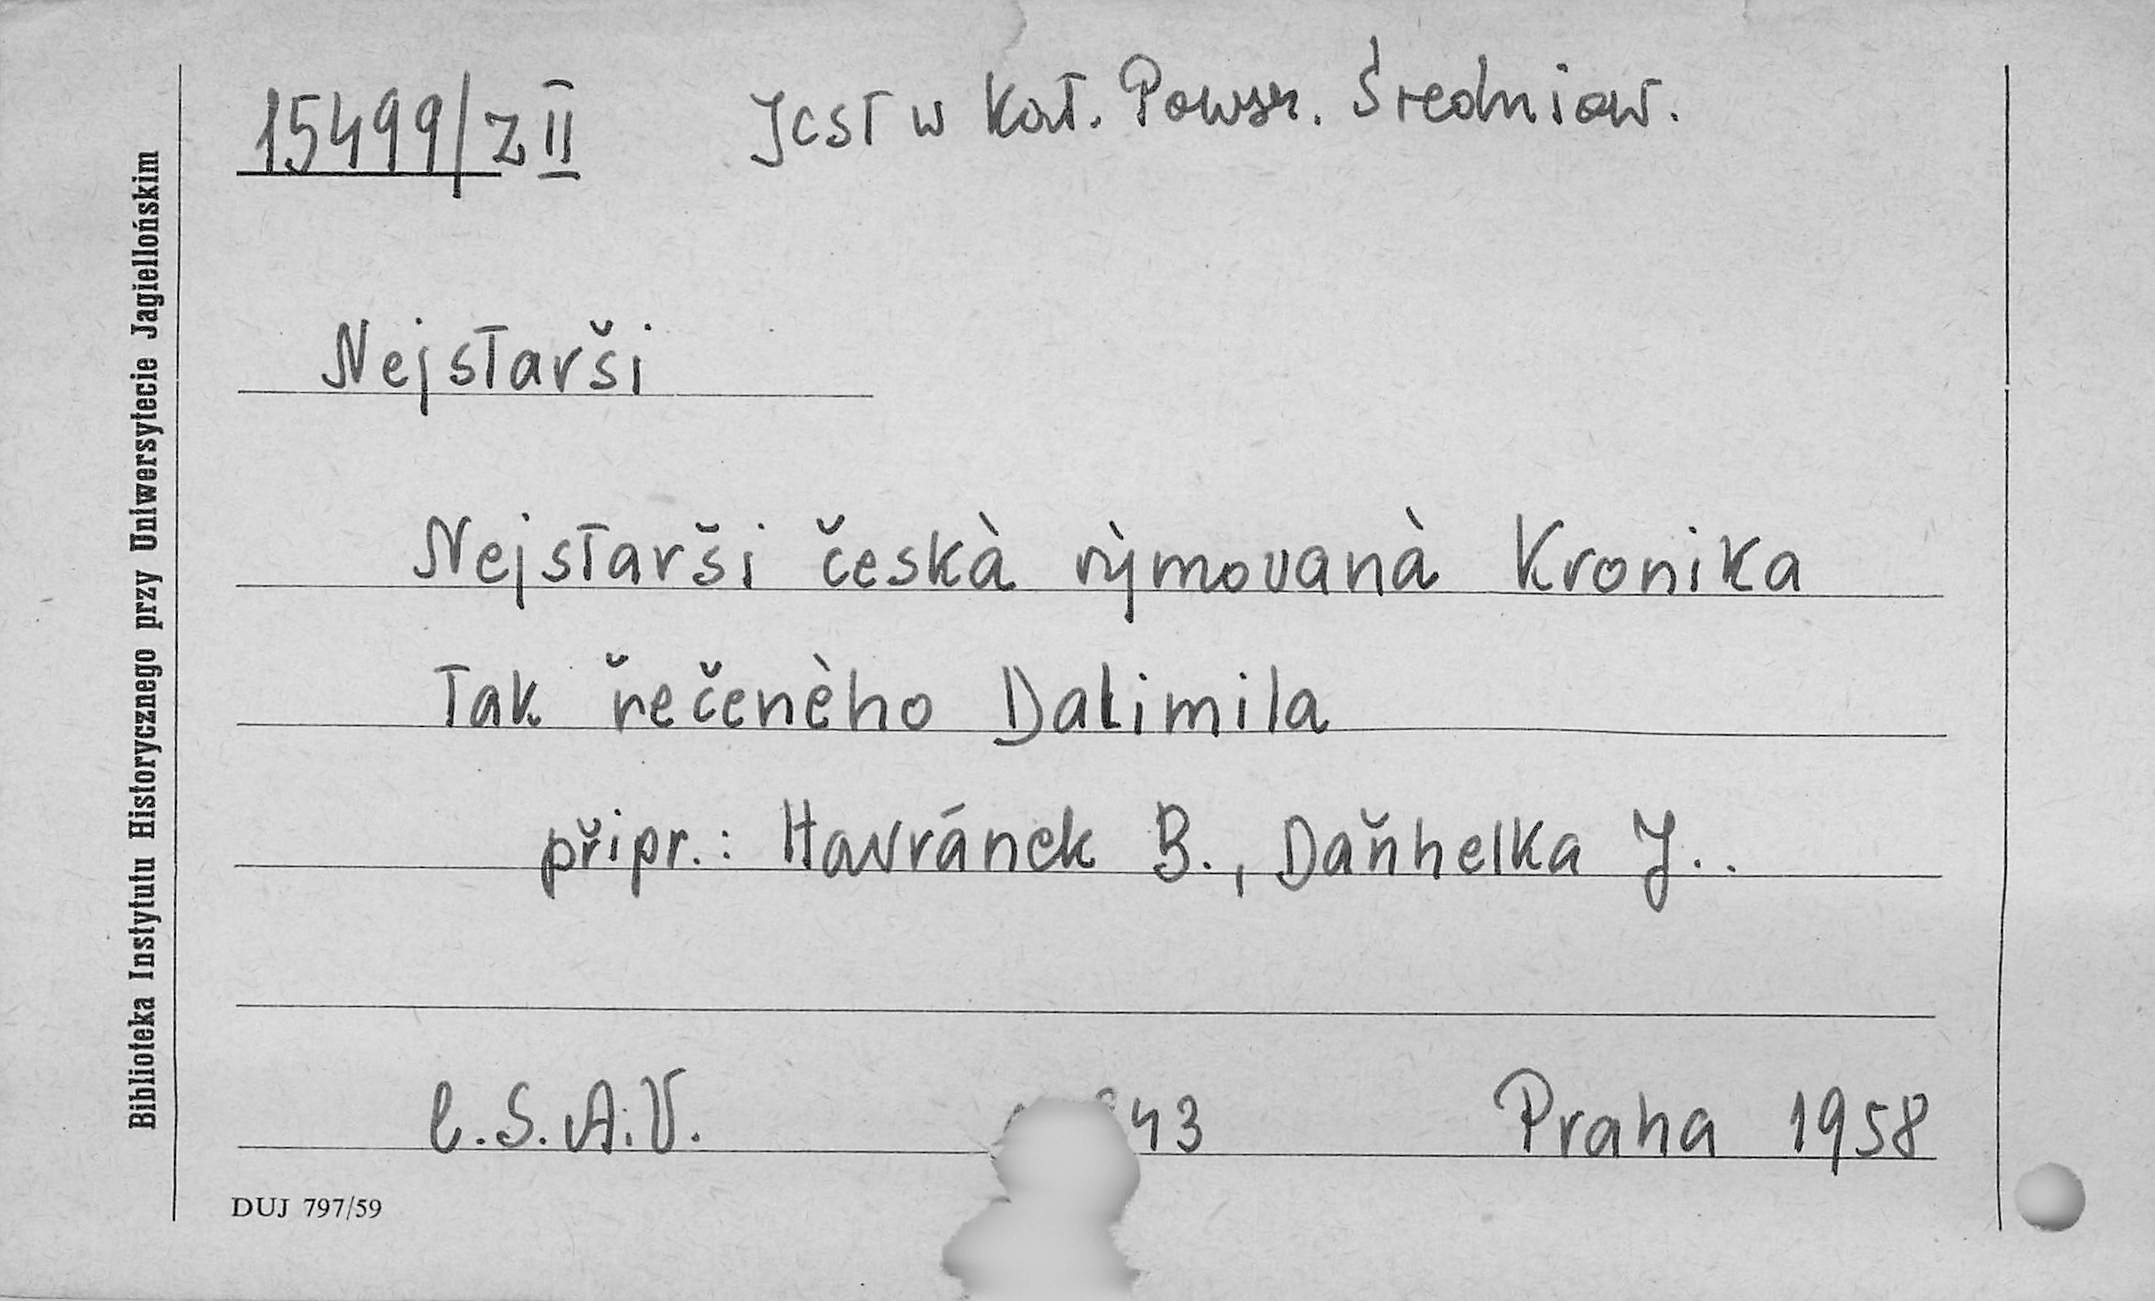 15499/Z II Jest w Kat. Powsz. Średniow.
Nejstarši
Nejstarši českà rỳmovanà Kronika
Tak řečenèho Dalimila
připr.: Havránek B., Daňhelka J..
C.S.A.V. 43 Praha 1958
DUJ 797/59
Biblioteka Instytutu Historycznego przy Uniwersytecie Jagiellońskim